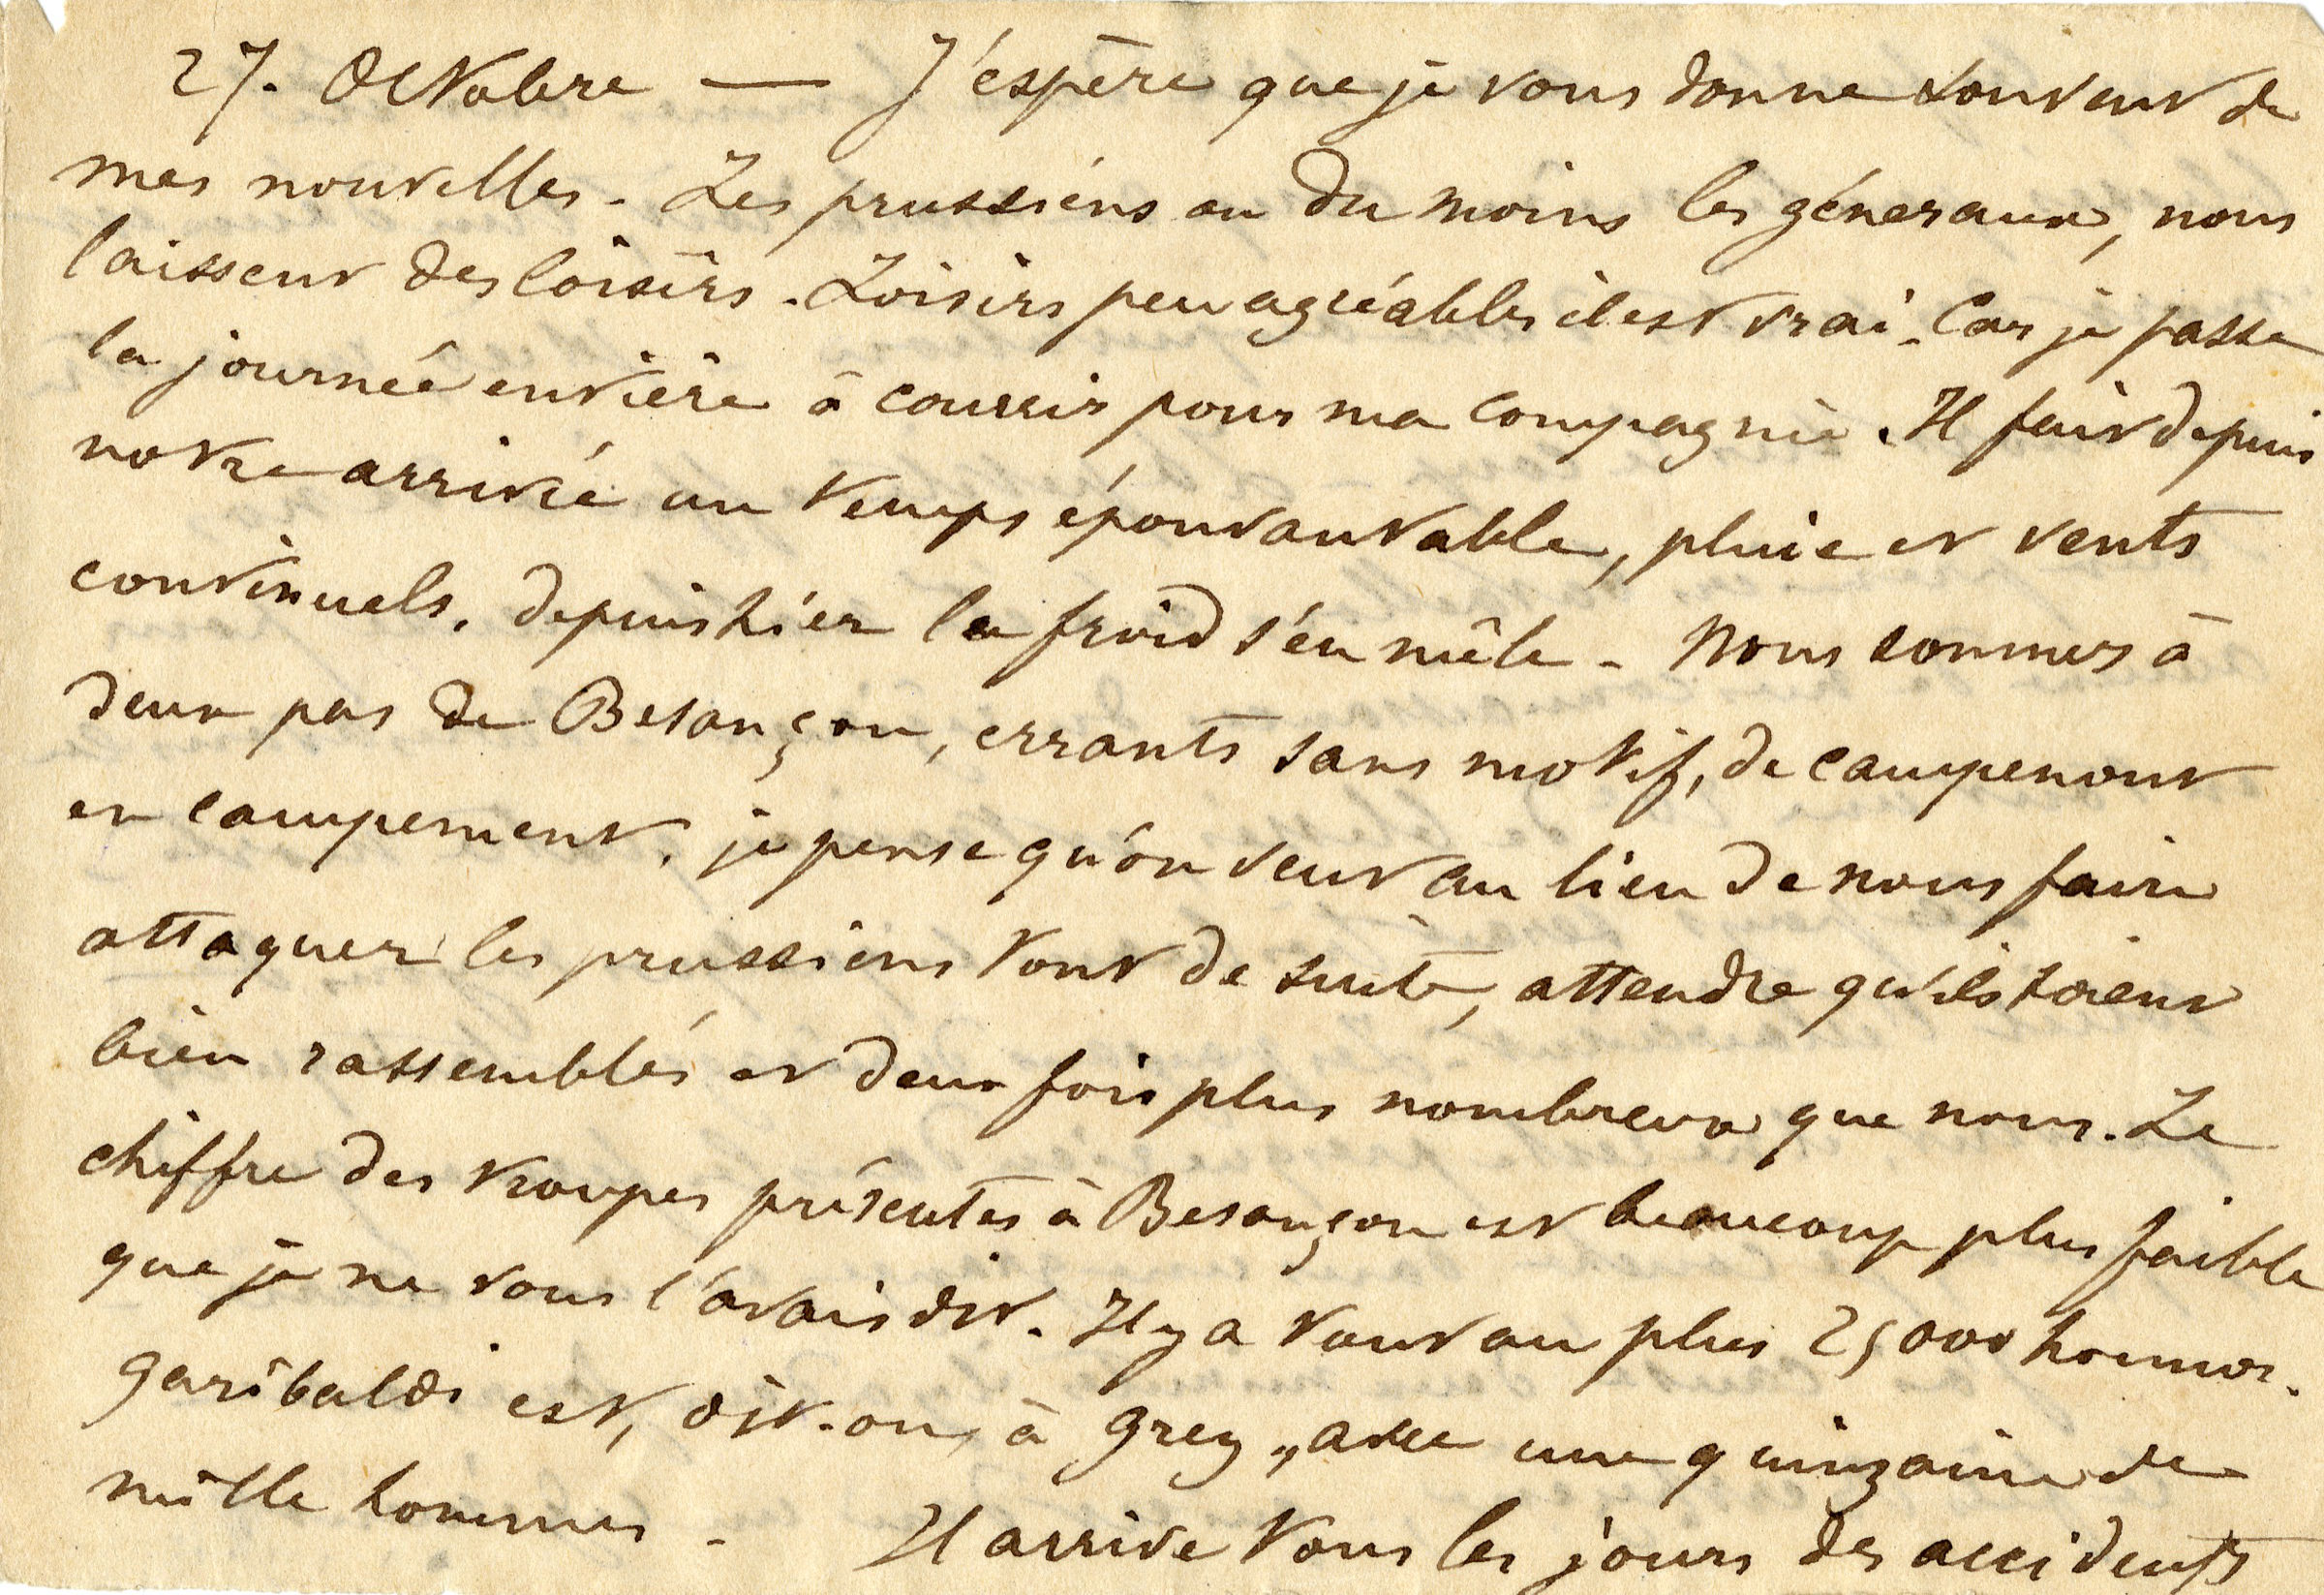 27. Octobre — J'espère que je vous donne souvent de
mes nouvelles. Les prussiens ou du moins les géneraux, nous
laissent des loisirs. Loisirs peu agréables il est vrai. Car je passe
la journée entière à courrir pour ma compagnie. Il fait depuis
notre arrivée un temps épouvantable, pluie et vents
continuels. depuis hier le froid s'en mêle. Nous sommes à
deux pas de Besançon, errants sans motif, de campement
en campement. je pense qu'on veut au lieu de nous faire
attaquer les prussiens tout de suite, attendre qu'ils soient
bien rassemblés et deux fois plus nombreux que nous. Le
chiffre des troupes présentes à Besançon est beaucoup plus faible
que je ne vous l'avais dit. Il y a tout au plus 25000 hommes.
Garibaldi est, dit-on, à Grey, avec une quinzaine de
mille hommes. Il arrive tous les jours des accidents